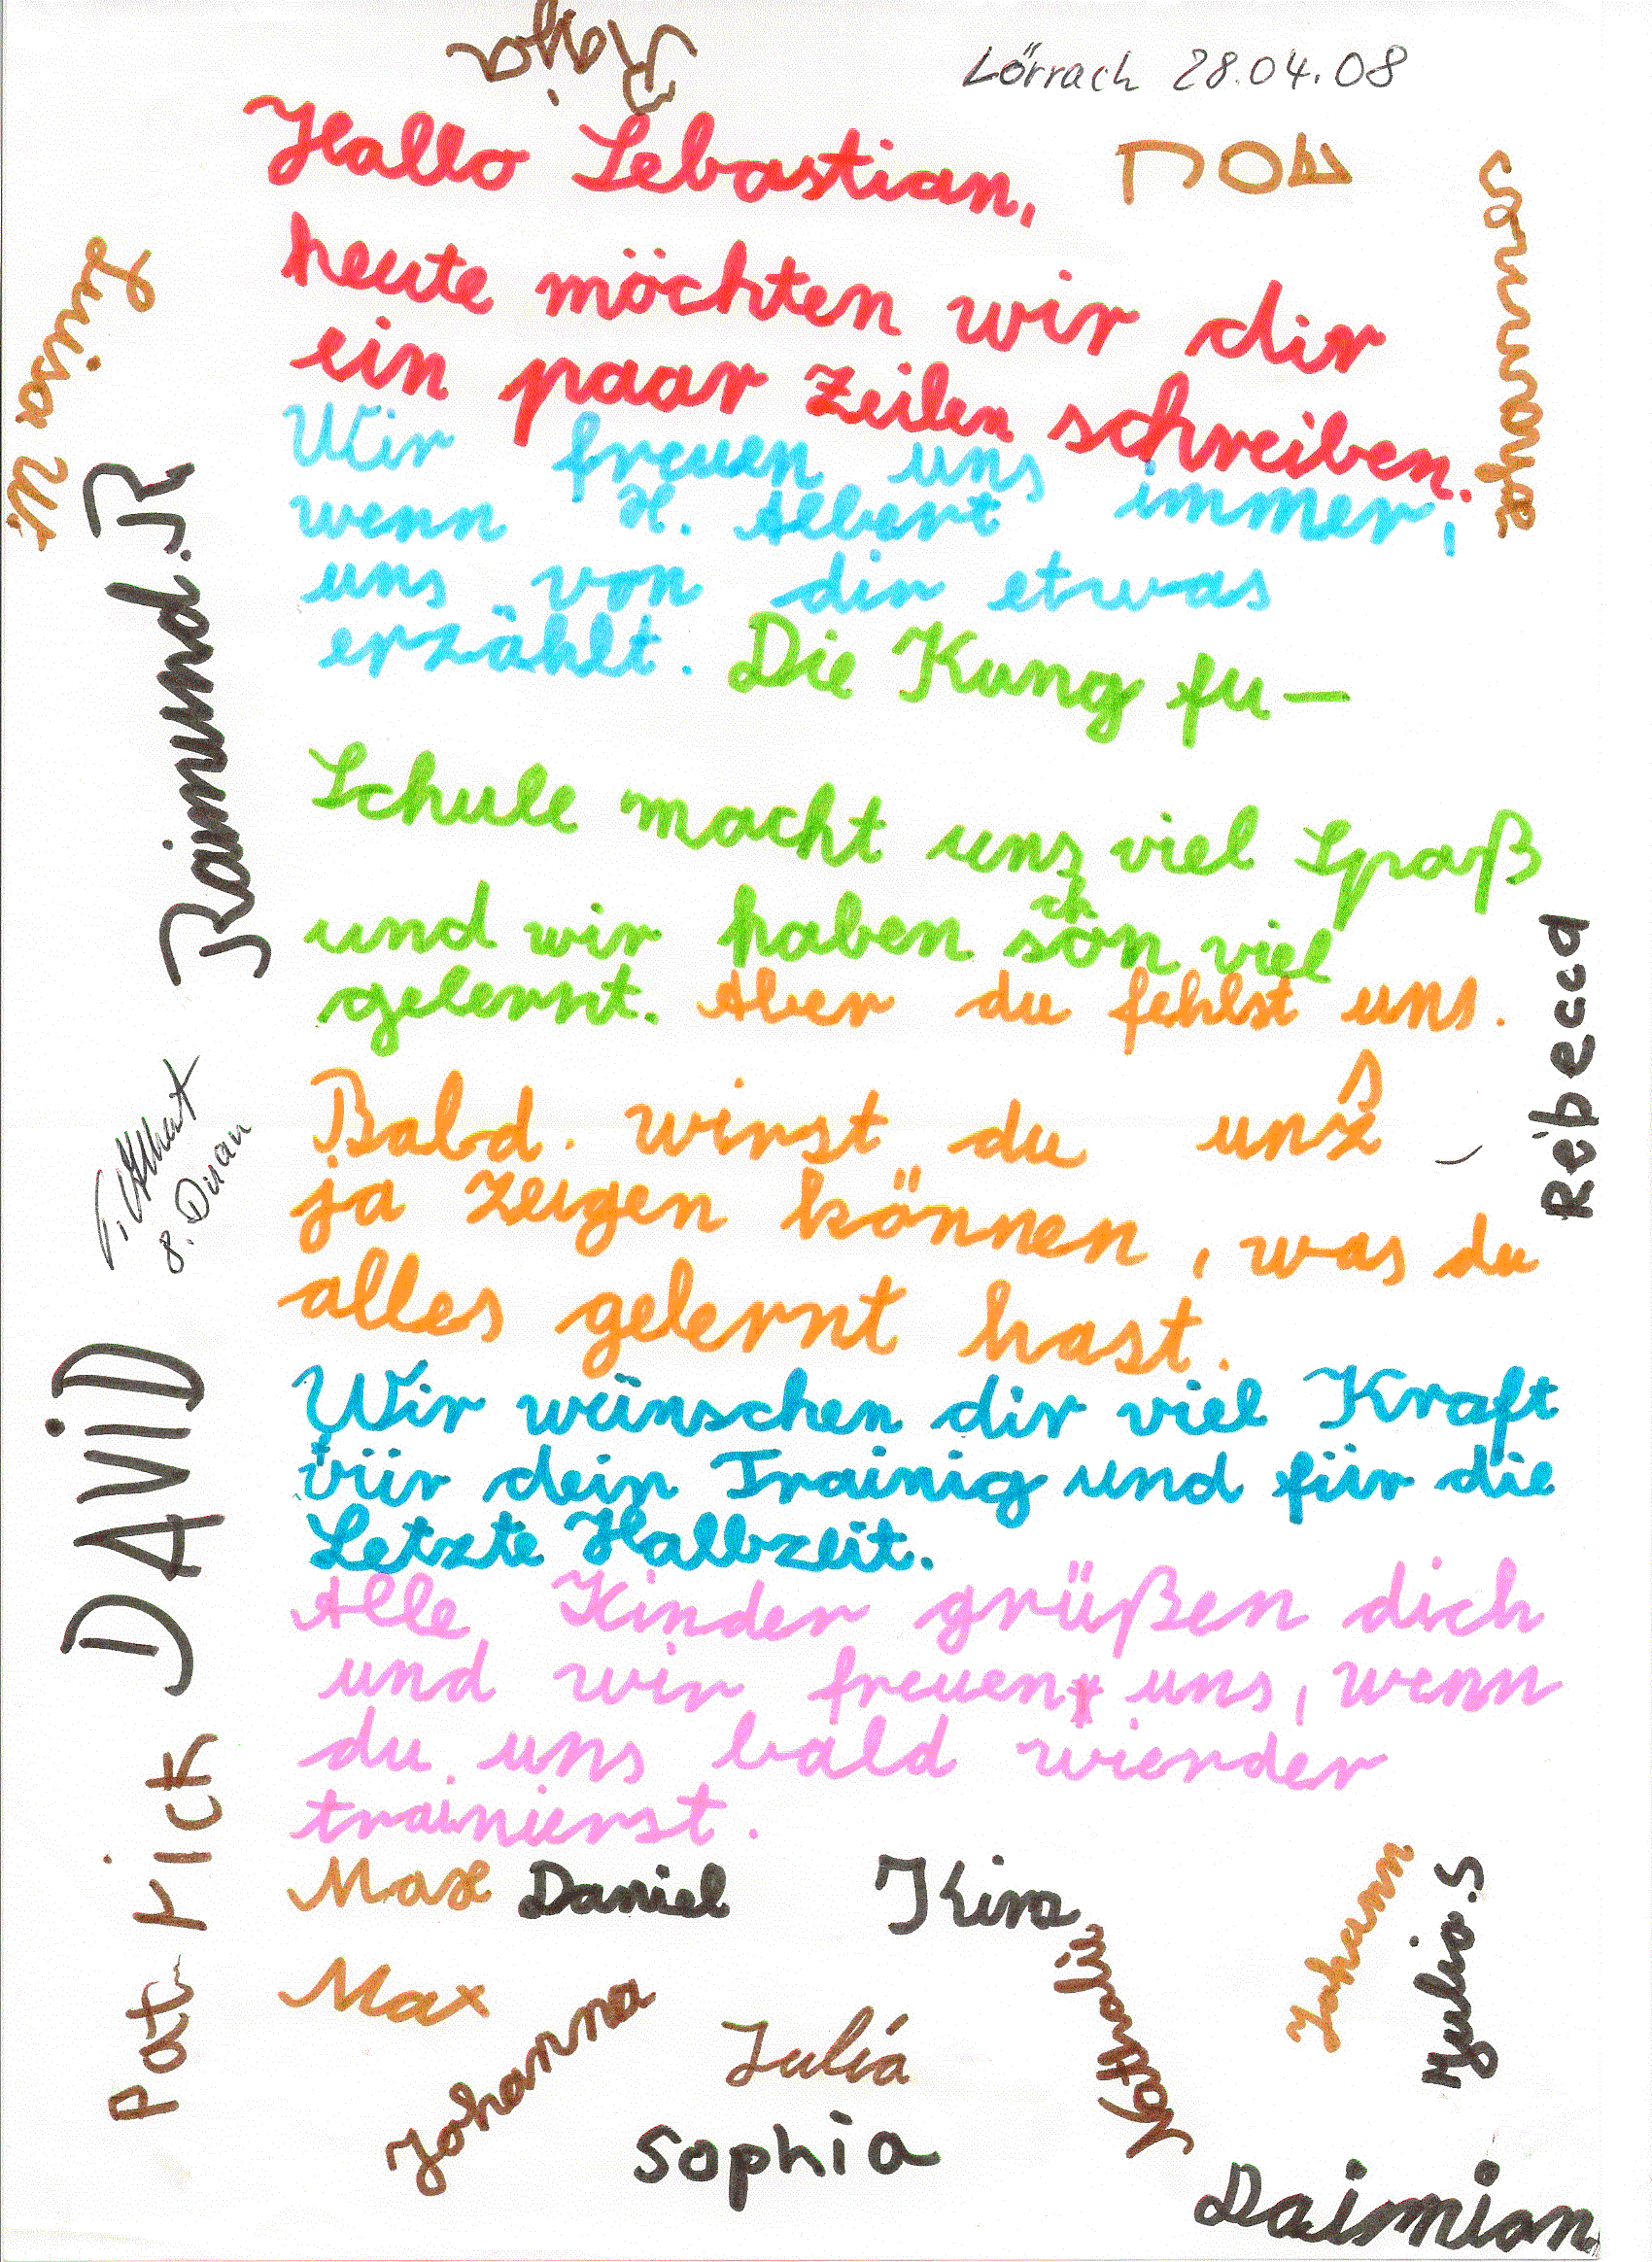 Raja
Lörrach 28.04.08
Hallo Sebastian,
heute möchten wir dir
ein paar Zeilen schreiben.
Wir freuen uns immer,
wenn H. Albert
uns von dir etwas
erzählt. Die Kung fu-
Schule macht uns viel Spaß
und wir haben schon viel
gelernt. Aber du fehlst uns.
Bald wirst du uns
ja zeigen können, was du
alles gelernt hast.
Wir wünschen dir viel Kraft
vür dein Trainig und für die
Letzte Halbzeit.
Alle Kinder grüßen dich
und wir freuen uns, wenn
du uns bald wierder
trainierst.
Max Daniel Kira
Max
Johanna
Julia
Sophia
Kathrin
Johann
Julia.S
Daimian
Luisa W.
Raimund.R
Albert
DAViD
Patrick
Rebecca